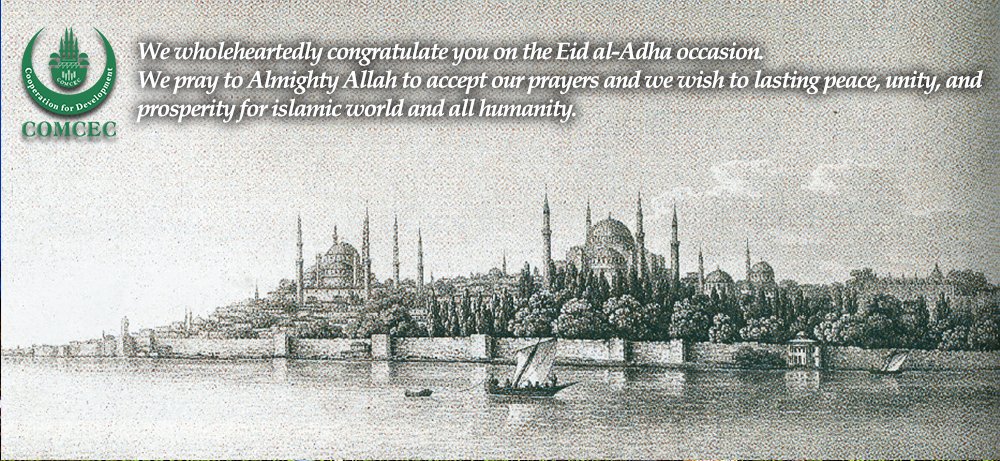 We wholeheartedly congratulate you on the Eid al-Adha occasion.
We pray to Almighty Allah to accept our prayers and we wish to lasting peace, unity, and
prosperity for islamic world and all humanity.
Cooperation for Development
COMCEC